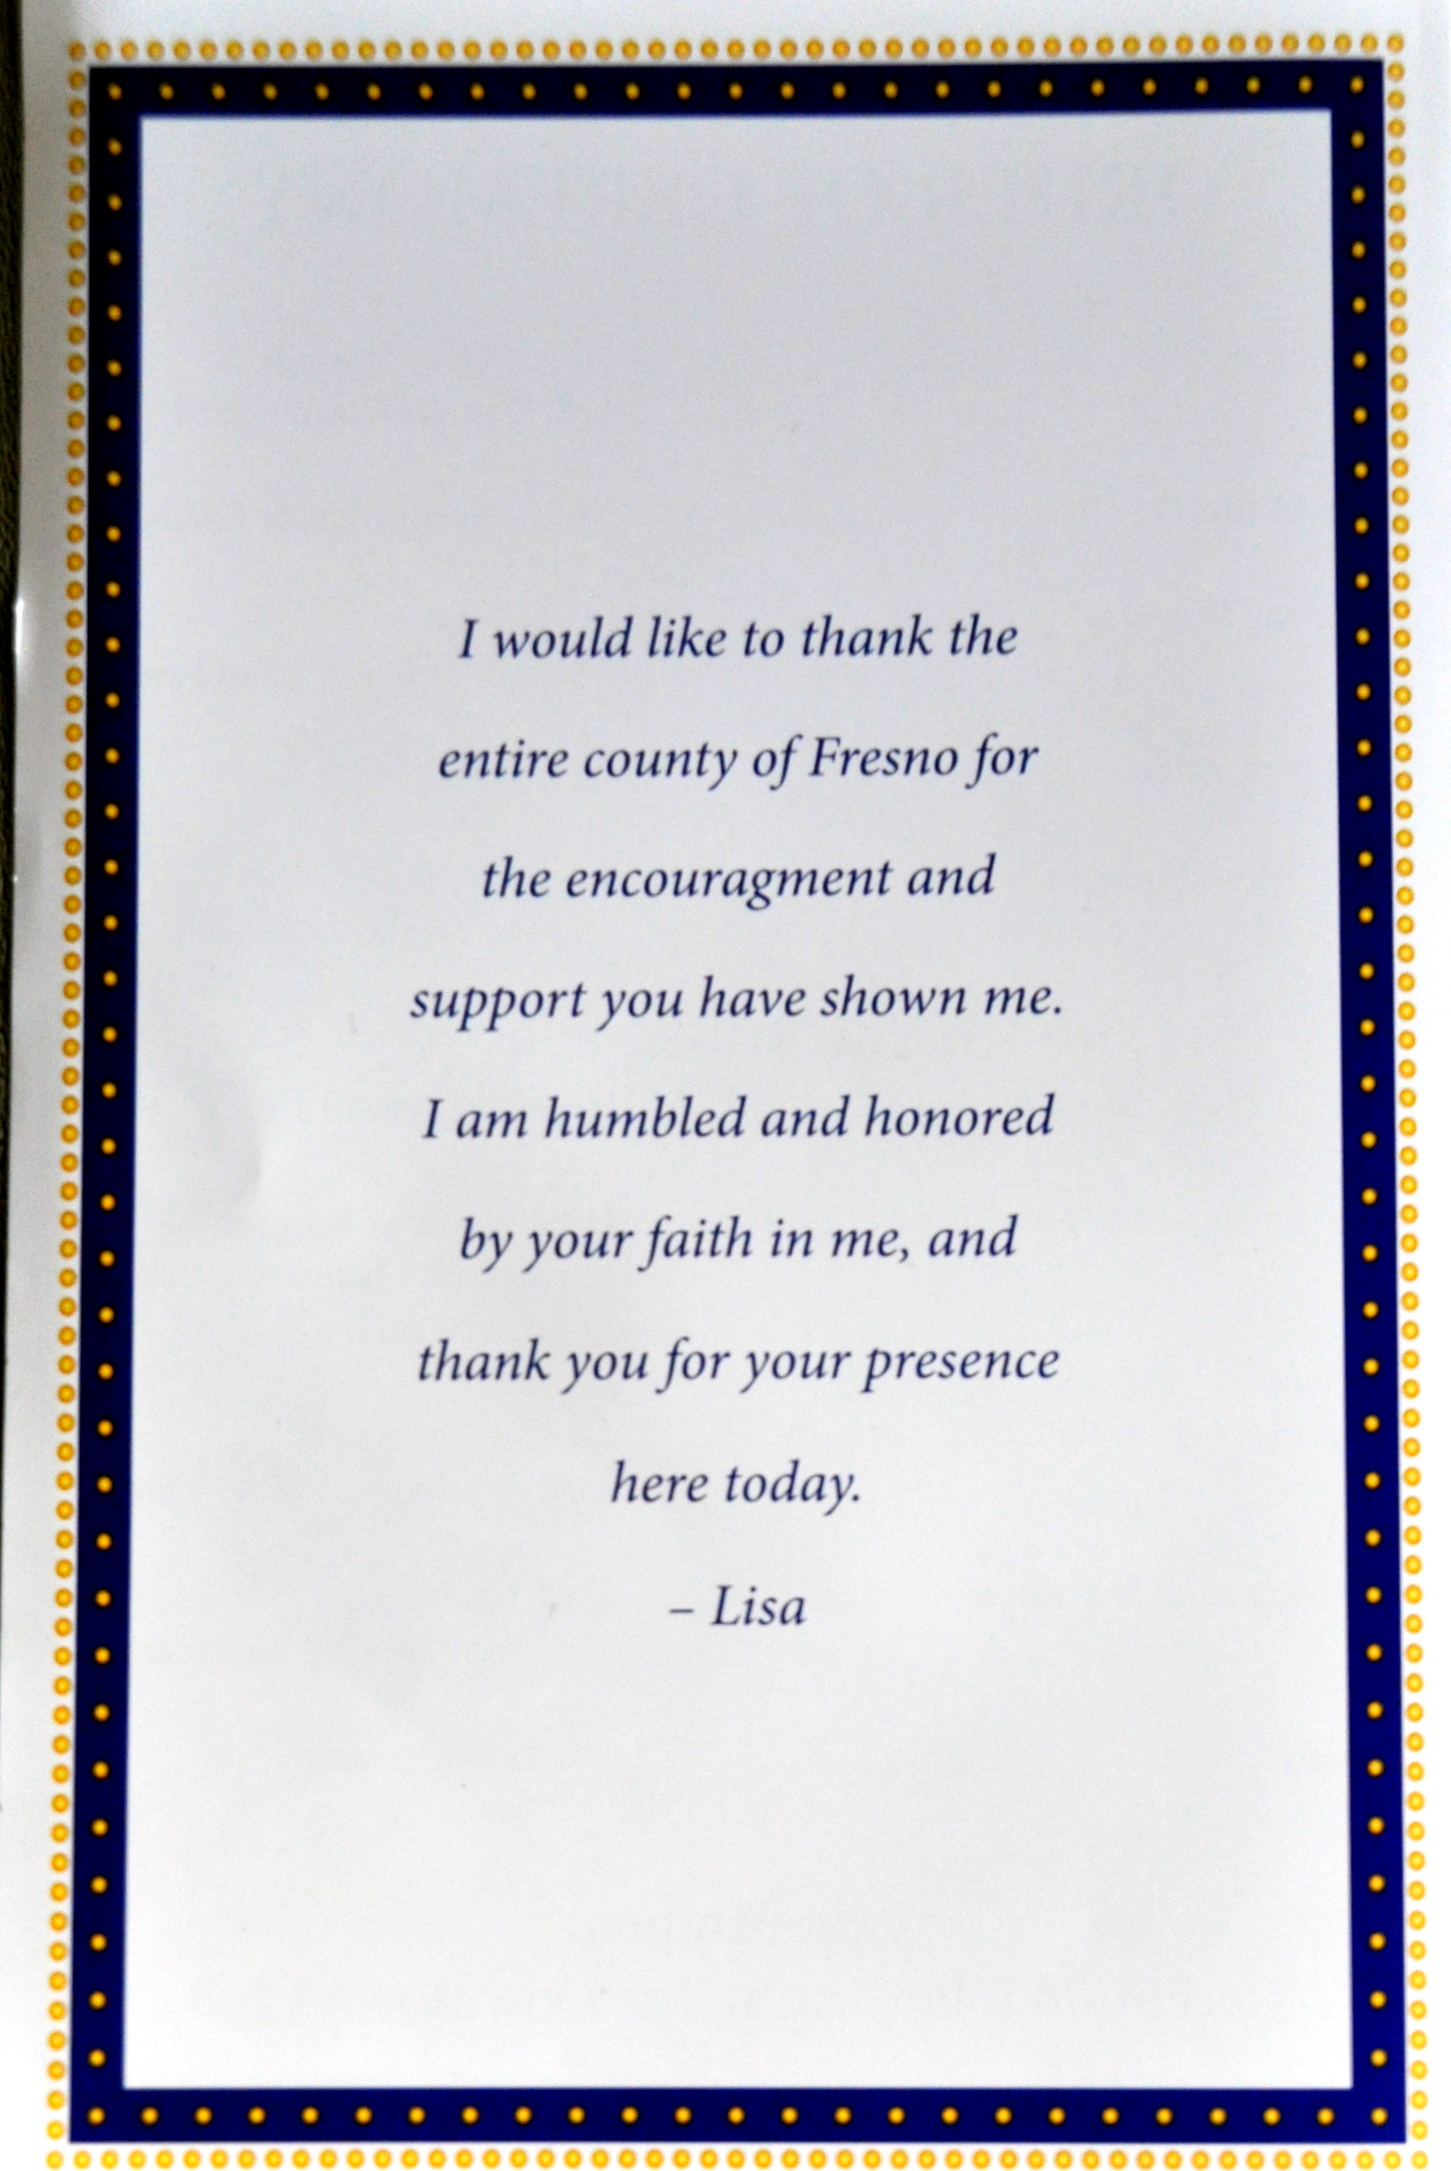 I would like to thank the
entire county of Fresno for
the encouragment and
support you have shown me.
I am humbled and honored
by your faith in me, and
thank you for your presence
here today.
– Lisa